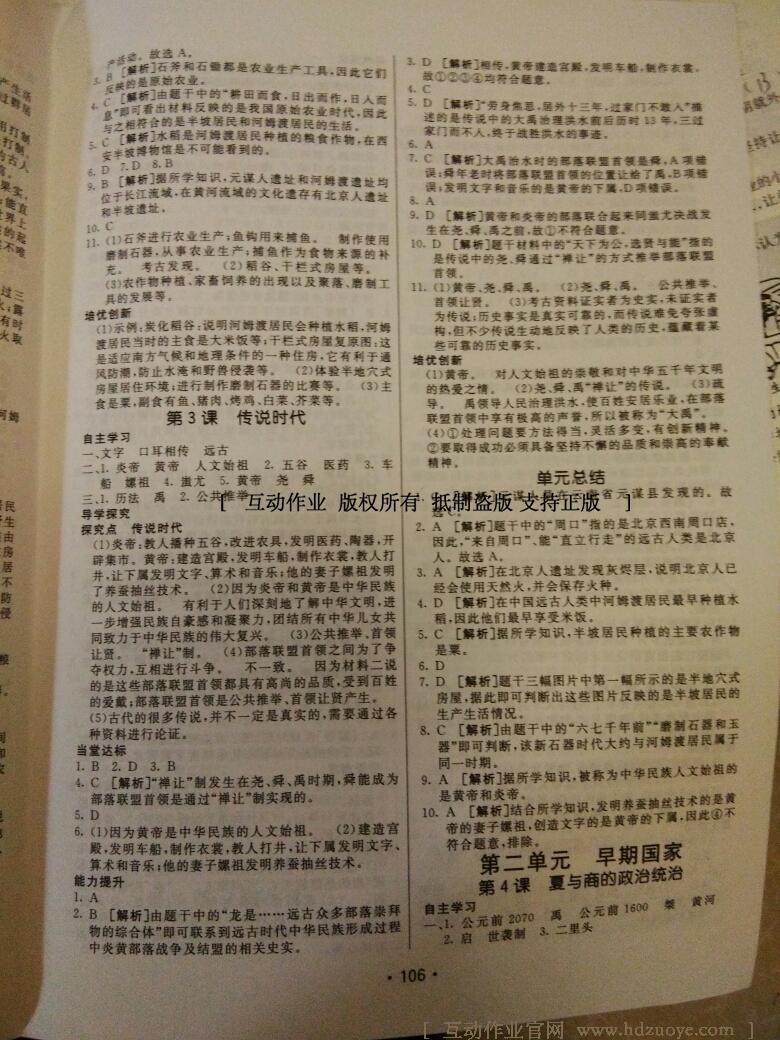 产活动。故选A。
3. B [解析]石斧和石锄都是农业生产工具,因此它们
反映的是原始农业。
4. C [解析]由题干中的“耕田而食,日出而作,日入而
息”即可看出材料反映的是我国原始农业时代,因此
与之相符合的是半坡居民和河姆渡居民的生活。
5. C [解析]水稻是河姆渡居民种植的粮食作物,在西
安半坡博物馆是不可能看到的。
6. D 7. D 8. B
9. B [解析]据所学知识,元谋人遗址和河姆渡遗址均
位于长江流域,在黄河流域的文化遗存有北京人遗址
和半坡遗址。
10. C
11. (1)石斧进行农业生产;鱼钩用来捕鱼。 制作使用
磨制石器,从事农业生产;捕鱼作为食物来源的补
充。 考古发现。 (2)稻谷、干栏式房屋等。
(3)农作物种植、家畜饲养的出现以及聚落、磨制工
具的发展等。
培优创新
(1)示例:炭化稻谷:说明河姆渡居民会种植水稻,河姆
渡居民当时的主食是大米饭等;干栏式房屋复原图:这
是适应南方气候和地理条件的一种住房,它有利于通
风防潮,防止水淹和野兽侵袭等。 (2)体验半地穴式
房屋居住环境;进行制作磨制石器的比赛等。 (3)主
食是粟,副食有鱼、猪肉、烤鸡、白菜、芥菜等。
第3课 传说时代
自主学习
一、文字 口耳相传 远古
二、1. 炎帝 黄帝 人文始祖 2. 五谷 医药 3. 车
船 嫘祖 4. 蚩尤 5. 黄帝 尧 舜
三、1. 历法 禹 2. 公共推举
导学探究
探究点 传说时代
(1)炎帝:教人播种五谷,改进农具,发明医药、陶器,开
辟集市。黄帝:建造宫殿,发明车船,制作衣裳,教人打
井,让下属发明文字、算术和音乐;他的妻子嫘祖发明
了养蚕抽丝技术。 (2)因为炎帝和黄帝是中华民族
的人文始祖。 有利于人们深刻地了解中华文明,进
一步增强民族自豪感和凝聚力,团结所有中华儿女共
同致力于中华民族的伟大复兴。 (3)公共推举、首领
让贤。 “禅让”制。 (4)部落联盟首领之间为了争
夺权力,互相进行斗争。 不一致。 因为材料二说
的是这些部落联盟首领都具有高尚的品质,受到百姓
的爱戴;部落联盟首领是公共推举、首领让贤产生。
(5)古代的很多传说,并不一定是真实的,需要通过各
种资料进行论证。
当堂达标
1. B 2. D 3. B
4. C [解析]“禅让”制发生在尧、舜、禹时期,舜能成为
部落联盟首领是通过“禅让”制实现的。
5. D
6. (1)因为黄帝是中华民族的人文始祖。 (2)建造宫
殿,发明车船,制作衣裳,教人打井,让下属发明文字、
算术和音乐;他的妻子嫘祖发明养蚕抽丝技术。
能力提升
1. A
2. B [解析]由题干中的“龙是……远古众多部落崇拜
物的综合体”即可联系到远古时代中华民族形成过程
中炎黄部落战争及结盟的相关史实。
3. D [解析]相传,黄帝建造宫殿,发明车船,制作衣裳,
故①②③④均符合题意。
4. C
5. D [解析]“劳身焦思,居外十三年,过家门不敢人”描
述的是传说中的大禹治理洪水前后历时13年,三过
家门而不入,终于战胜洪水的事迹。
6. A
7. C [解析]大禹治水时的部落联盟首领是舜,A项错
误;舜年老时将部落联盟首领的位置让给了禹,B项错
误;发明文字和音乐的是黄帝的下属,D项错误。
8. A
9. D [解析]黄帝和炎帝的部落联合起来同蚩尤决战发
生在尧、舜、禹之前,故①不符合题意。
10. D [解析]题干材料中的“天下为公,选贤与能”指的
是传说中的尧、舜通过“禅让”的方式推举部落联盟
首领。
11. (1)黄帝、尧、舜。 (2)尧、舜、禹。 公共推举、
首领让贤。 (3)考古资料证实者为史实,未证实者
为传说;历史事实是真实可靠的,而传说难免夸张虚
构,但不少传说生动地反映了人类的历史,蕴藏着某
些可靠的历史事实。
培优创新
(1)黄帝。 对人文始祖的崇敬和对中华五千年文明
的热爱之情。 (2)尧、舜、禹“禅让”的传说。 (3)疏
导。 禹领导人民治理洪水,使百姓安居乐业,在部落
联盟首领中享有极高的声誉,所以被称为“大禹”。
(4)①处理问题要方法得当,灵活多变,有创新精神。
②要取得成功必须具备坚持不懈的品质和崇高的奉献
精神。
单元总结
[ 互动作业 版权所有 抵制盗版 支持正版 ]
2. A [解析]题干中的“周口”指的是北京西南周口店,
因此,“来自周口”、能“直立行走”的远古人类是北京
人。故选A。
3. A [解析]在北京人遗址发现灰烬层,说明北京人已
经会使用天然火,并会保存火种。
4. D [解析]在中国远古人类中河姆渡居民最早种植水
稻,因此他们最早享受米饭。
5. C [解析]据所学知识,半坡居民种植的主要农作物
是粟。
6. D
7. D [解析]题干三幅图片中第一幅所示的是半地穴式
房屋,据此即可判断出这些图片反映的是半坡居民的
生产生活情况。
8. C [解析]由题干中的“六七千年前”“磨制石器和玉
器”即可判断,该新石器时代大约与河姆渡居民属于
同一时期。
9. A [解析]据所学知识,被称为中华民族人文始祖的
是黄帝和炎帝。
10. A [解析]结合所学知识,发明养蚕抽丝技术的是黄
帝的妻子嫘祖,创造文字的是黄帝的下属,因此④不
符合题意,排除。
第二单元 早期国家
第4课 夏与商的政治统治
自主学习
一、1. 公元前2070 禹 公元前1600 桀 黄河
2. 启 世袭制 3. 二里头
· 106 ·
[ 互动作业官网 www.hdzuoye.com ]